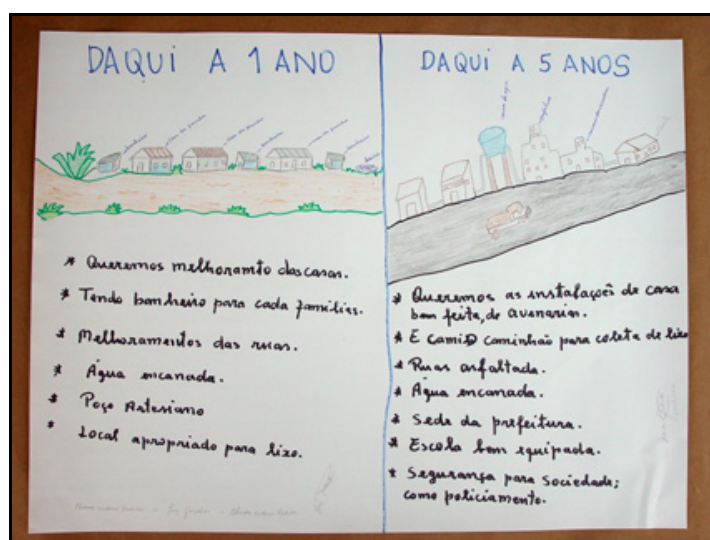 DAQUI A 1 ANO
* Queremos melhoramto das casas.
* Tendo banheiro para cada familias.
* Melhoramentos das ruas.
* Água encanada.
* Poço Artesiano
* Local apropriado para lixo.
DAQUI A 5 ANOS
* Queremos as instalações de casa
bem feita, de avenarin.
* E camião caminhão para coleta de lixo
* Ruas asfaltada.
* Água encanada.
* Sede da prefeitura.
* Escola bem equipada.
* Segurança para sociedade;
como policiamento.